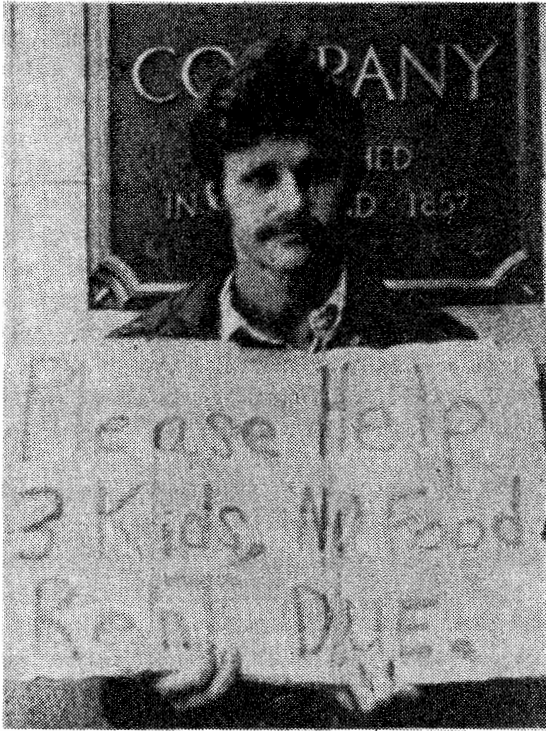 COMPANY
IN 1857
Please Help
3 Kids, No Food
Rent DUE.